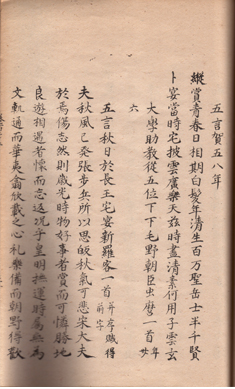 五言賀五八年
縱賞青春日相期白髮年清生百万聖岳士半千賢
卜宴當時宅披雲廣樂天茲時盡清素何用子雲玄
大學助教從五位下下毛野朝臣虫麿一首 年卅
六
五言秋日於長王宅宴新羅客一首 并序賦得
前字
夫秋風已發張步兵所以思歸秋氣可悲宋大夫
於焉傷志然則歲光時物好事者賞而可憐勝地
良遊相遇者懷而忘返況乎皇明撫運時屬無為
文軌通而華夷翕欣戴之心礼樂備而朝野得歡